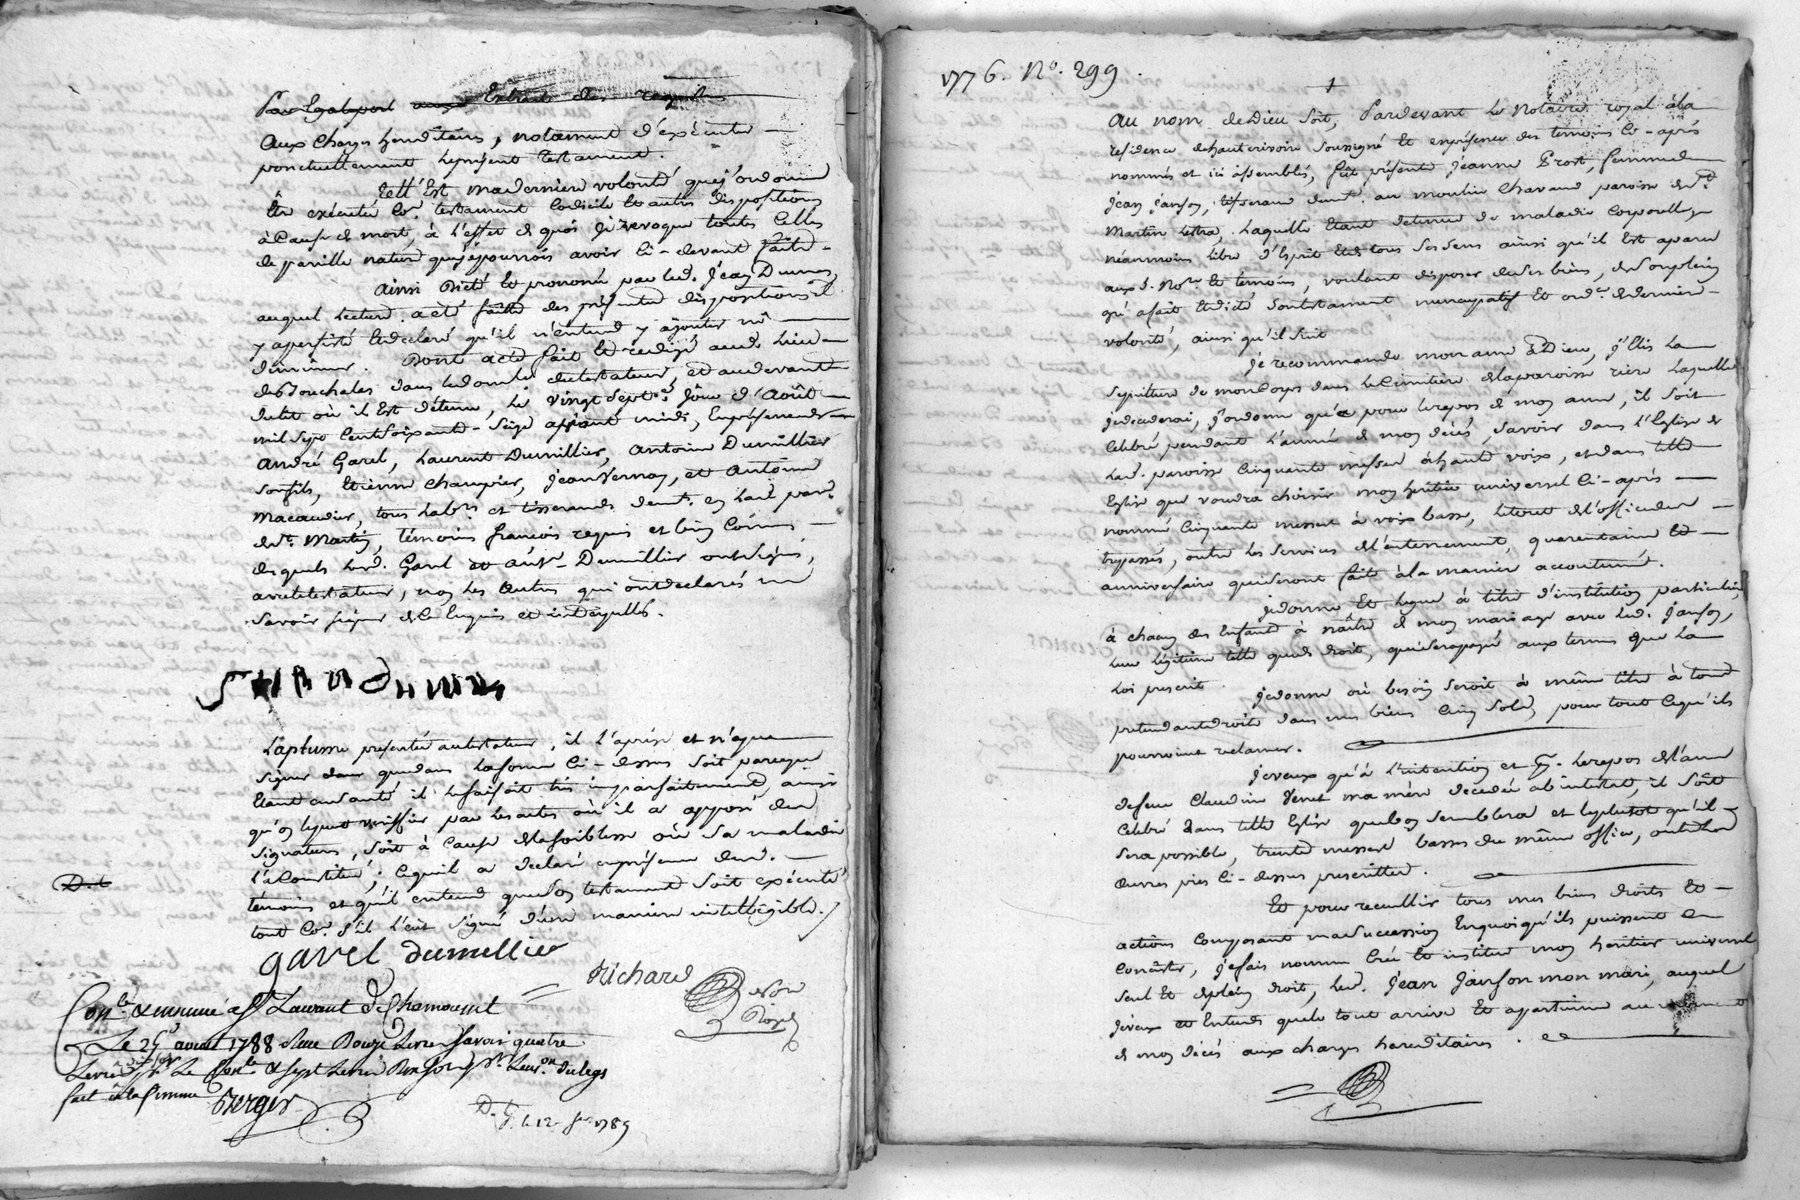 Extrait des
aux charges hereditaires, notamment d'exécuter
ponctuellement le present testament.
Telle Est ma derniere volonté que j'ordonne
Etre exécutée Coe. testament Codicile Et autres dispositions
à Cause de mort, à l'effet de quoi je revoque toutes Celles
de pareille nature que je pourrois avoir Ci-devant faites
ainsi Dicté Et prononcé par led. Jean Dumas
auquel Lecture a eté faitte des présentes dispositions il
y a persisté Et declaré qu'il n'entend y ajouter ni
diminuer. Dont acte fait Et redigé audt. Lieu
des Bouchales dans le domile. du testateur, et audevant
du lit où il Est détenu, Le vingt sept.e Jour d'Août
mil Sept Cent Soixante-Seize après midi, En présence de
André Garel, Laurent Dumillier, Antoine Dumillier
son fils, Etienne Champier, Jean Vernay, et Antoine
Macaudier, tous habts. et tisserands demts. en lad. parse.
de St. Martin, témoins françois requis et bien Connus
desquels lesd. Garel et Ant. Dumillier ont signé,
avec le testateur, non les Autres qui ont declarés ne
savoir signer de Ce Enquis et interpellés.
La plume presentée au testateur, il l'a prise et n'a pu
signer dans que dans la forme Ci-dessus soit parceque
Etant en santé il le faisoit très imparfaitement, ainsi
qu'on le peut vérifier par les actes où il a apposé des
signatures, soit à Cause de la foiblesse où sa maladie
l'a Constitué; Ce qu'il a declaré en présence desd.
témoins et qu'il entend que son testament soit exécuté
tout Coe. s'il l'eut signé d'une maniere intelligible.
D. t
gavel dumillier
Richard
Nore
Royal
Conlé. & insinué à St. Laurent de Chamousset
Le 25 avril 1788 Reçu Douze Livres Savoir quatre
Livres dix sols pr. Le Conle. & sept Livres Dix sols pr. Linson. du legs
fait à la femme
Berger
D. G. le 12 1789
1776. No. 299.
1
Au nom de Dieu soit, Pardevant Le Notaire royal à la
residence de hauterivoire soussigné Et en présence des temoins Ci-après
nommés et ici assemblés, fut présente Jeanne Prost, femme de
Jean Janson, tisserand demt. au moulin Chavand paroisse de St.
Martin Lestra, Laquelle Etant detenue de maladie Corporelle
néanmoins libre d'Esprit Et de tous ses sens ainsi qu'il Est aparu
aux d. Nore. Et témoins, voulant disposer de ses biens, de son plein
gré a fait Et dicté son testament nuncupatif Et ordce. de derniere
volonté, ainsi qu'il suit
Je recommande mon ame à Dieu, j'Elis La
Sepulture de mon Corps dans le Cimetiere de la paroisse riere laquelle
je decederai, J'ordonne que pour le repos de mon ame, il soit
Celebré pendant L'année de mon décés, savoir dans l'Eglise de
lad. paroisse Cinquante messes à haute voix, et dans telle
Eglise que voudra choisir mon heritier universel Ci-après
nommé Cinquante messes à voix basse, le tout de l'office des
trepassés, outre les services de l'enterrement, quarantaine Et
anniversaire qui seront faits à la maniere accoutumée.
Je donne Et legue à titre d'institution particuliere
à chacun des Enfans à naître de mon mariage avec led. Janson,
leur légitime telle que de droit, qui sera payée aux termes que la
Loi prescrit. Je donne où besoin seroit à même titre à tous
pretendants droits dans mes biens Cinq Sols, pour tout Ce qu'ils
pourroient reclamer.
Je veux qu'à l'intention et pr. le repos de l'ame
de feue Claudine Venet ma mère decedée ab intestat, il soit
Celebré dans telle Eglise que bon semblera et le plutot qu'il
sera possible, trente messes basses du même office, outre les
Œuvres pies Ci-dessus prescrittes.
Et pour recueillir tous mes biens droits Et
actions Composant ma succession En quoi qu'ils puissent
Consister, je fais nomme Crée Et institue mon heritier universel
seul Et de plein droit, led. Jean Janson mon mari, auquel
je veux et Entends que le tout arrive Et apartienne au moment
de mon decés aux charges hereditaires.